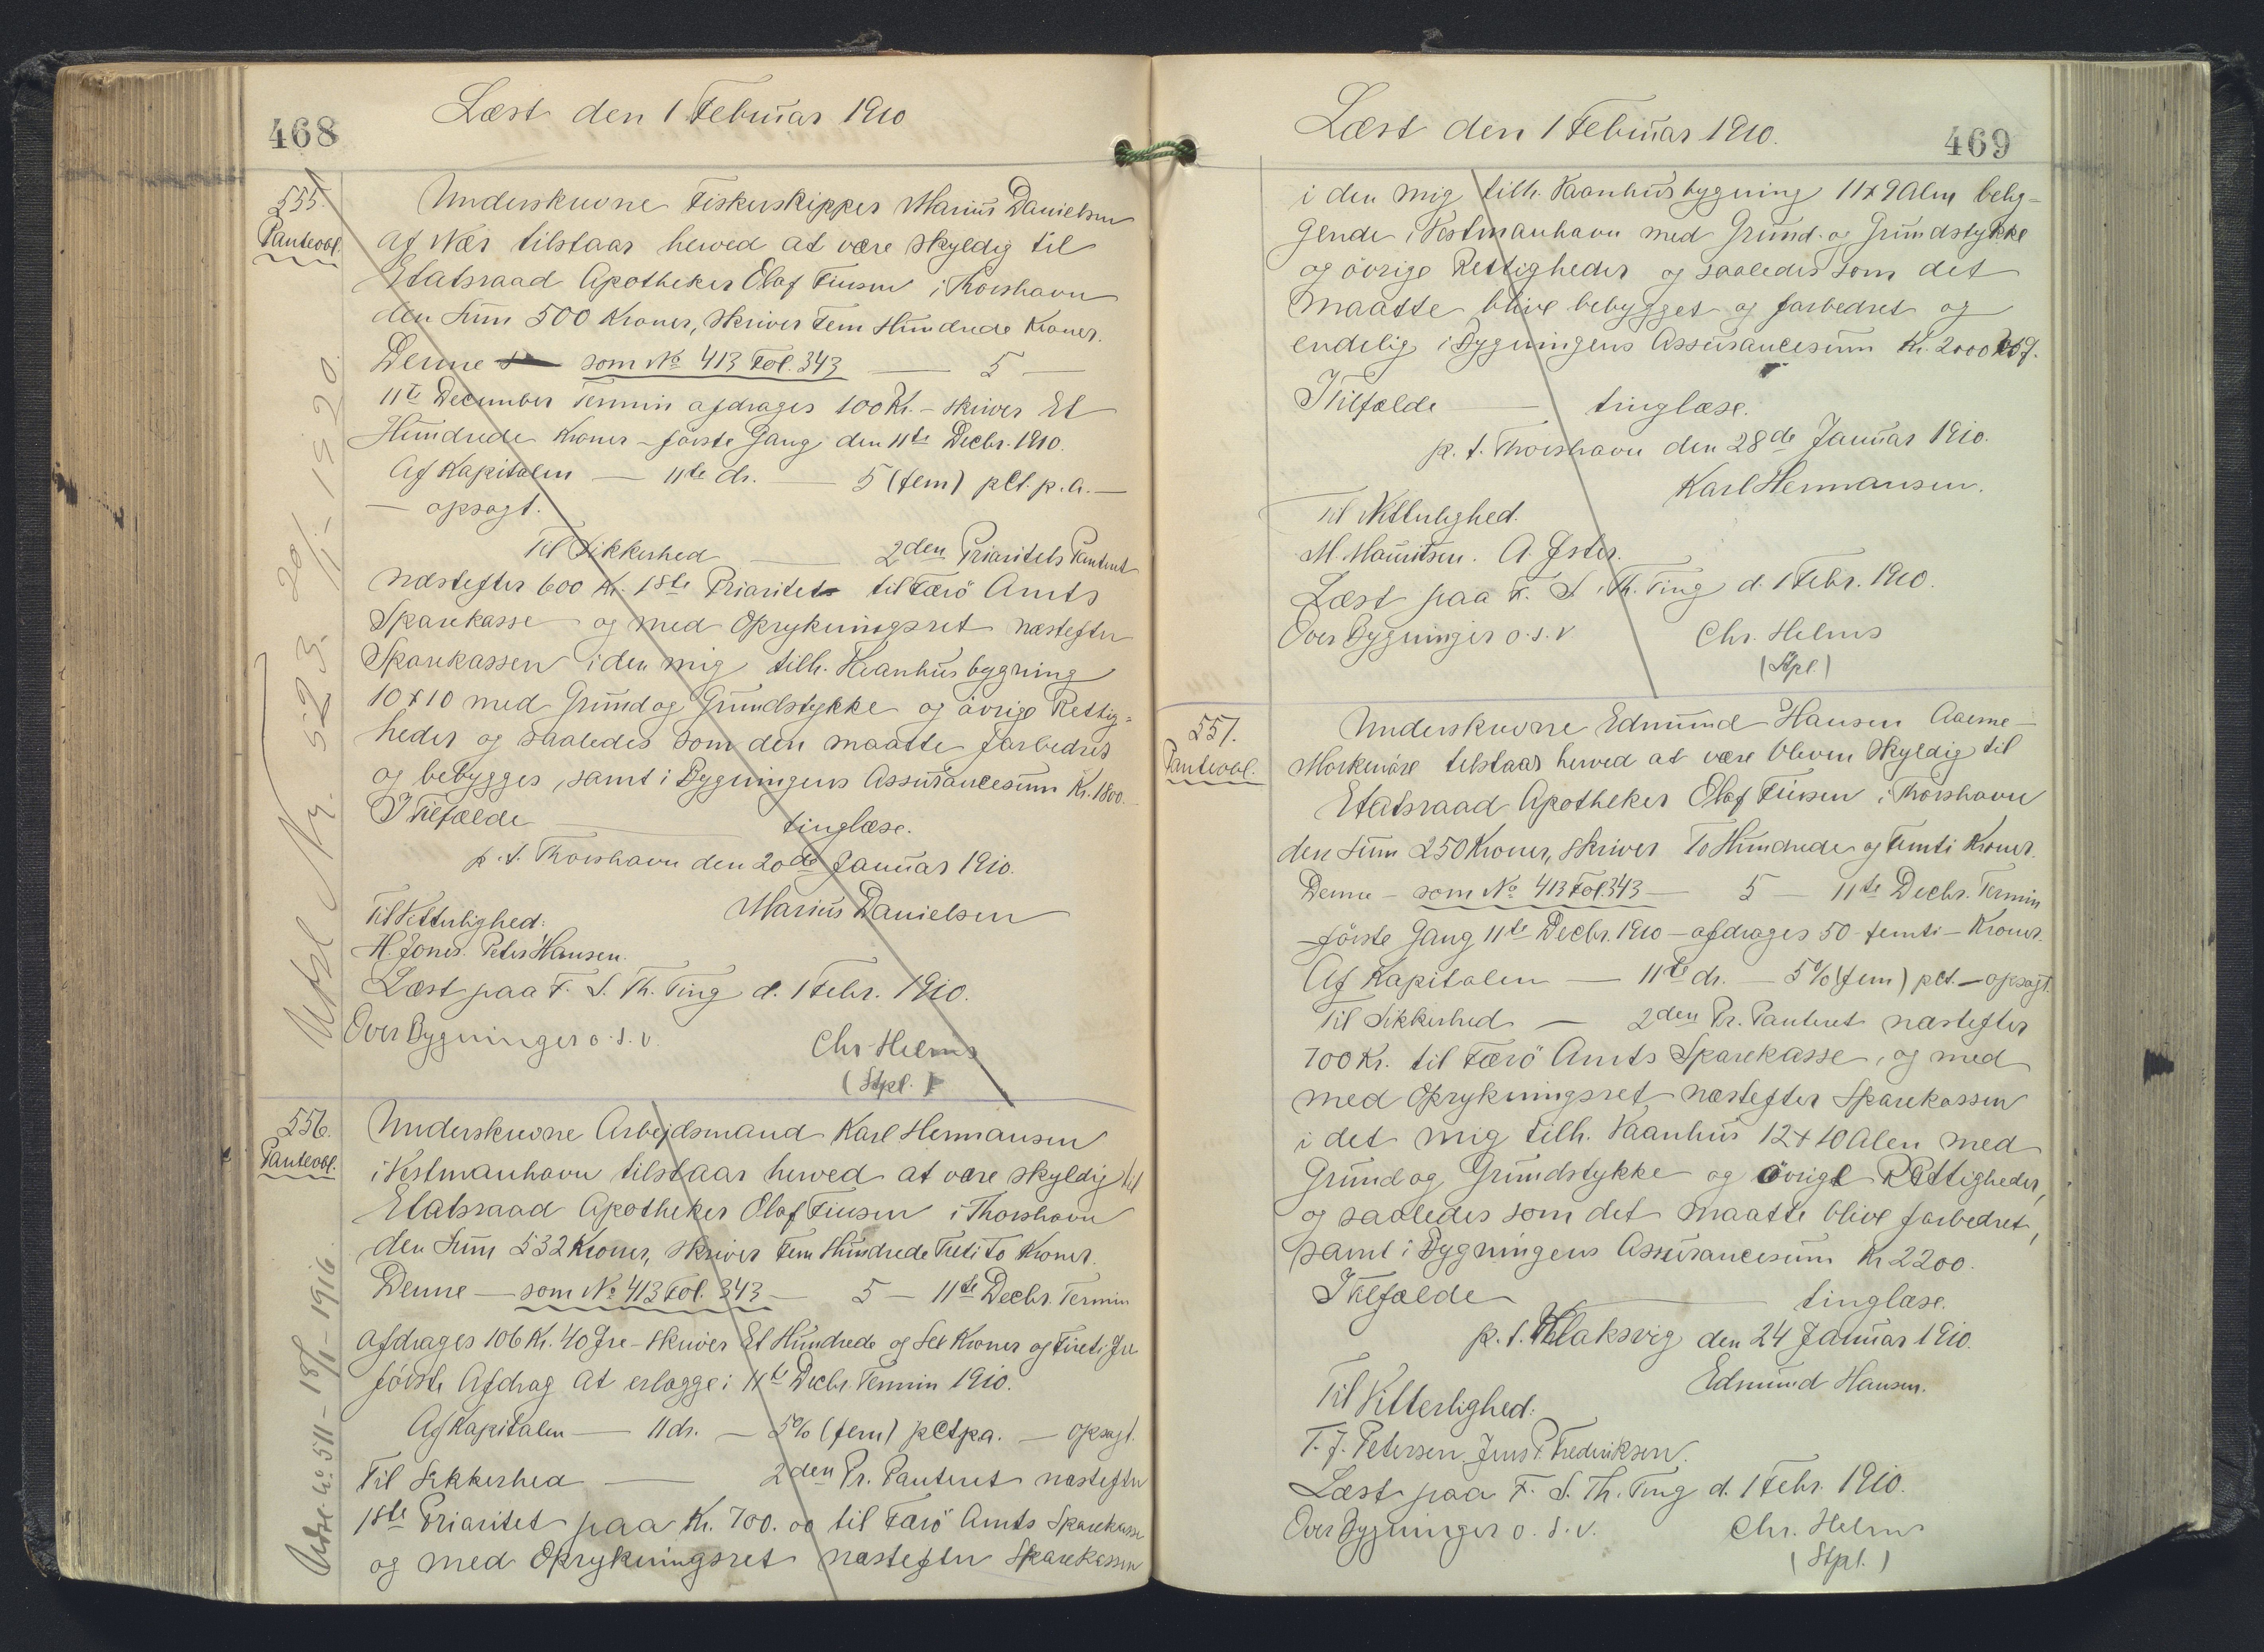 468
Læst den 1 Februar 1910
555.
Panteobl.
Underskrevne Fiskerskipper Marius Danielsen
af Næs tilstaar herved at være skyldig til
Etatsraad Apotheker Olaf Finsen i Thorshavn
den Sum 500 Kroner, skriver Fem Hundrede Kroner.
Denne som No 413 Fol. 343 — 5 —
11te December Termin afdrages 100 Kr. – skriver Et
Hundrede Kroner – første Gang den 11te Decbr. 1910.
Af Kapitalen — 11te dr. — 5 (fem) pCt. p.a. —
— opsagt.
Til Sikkerhed — 2den Prioritets Panteret
næstefter 600 Kr. 1ste Prioritet til Færö Amts
Sparekasse og med Oprykningsret næstefter
Sparekassen i den mig tilh. Vaanhusbygning
10 x 10 med Grund og Grundstykke og övrige Rettig=
heder og saaledes som den maatte forbedres
og bebygges, samt i Bygningens Assurancesum Kr. 1800.
I Tilfælde — tinglæse.
p. t. Thorshavn den 20de Januar 1910.
Marius Danielsen
Til Vitterlighed:
H. Jones. Peter Hansen.
Læst paa F. S. Th. Ting d. 1 Febr. 1910.
Over Bygninger o. s. v.
Chr. Helms
(Stpl.)
Nr. 523. 20/1- 1920.
556.
Panteobl.
Underskrevne Arbejdsmand Karl Hermansen
i Vestmanhavn tilstaar herved at være skyldig til
Etatsraad Apotheker Olaf Finsen i Thorshavn
den Sum 532 Kroner, skriver Fem Hundrede Treti To Kroner.
Denne — som No 413 Fol. 343 — 5 — 11te Decbr. Termin
afdrages 106 Kr. 40 Øre – skriver Et Hundrede og Sex Kroner og Fireti Øre
første Afdrag at erlægge i 11te Decbr. Termin 1910.
Af Kapitalen — 11 dr. — 5% (fem) pCt p.a. — opsagt.
Til Sikkerhed — 2den Pr. Panteret næstefter
1ste Prioritet paa Kr. 700.00 til Færö Amts Sparekasse
og med Oprykningsret næstefter Sparekassen
No 511 – 18/1 – 1916.
Læst den 1 Februar 1910.
469
i den mig tilh. Vaanhusbygning 11 x 9 Alen belig=
gende i Vestmanhavn med Grund og Grundstykke
og övrige Rettigheder og saaledes som det
maatte blive bebygget og forbedret og
endelig i Bygningens Assurancesum Kr. 2000
I Tilfælde — tinglæse.
p. t. Thorshavn den 28de Januar 1910.
Karl Hermansen.
Til Vitterlighed.
M. Mouritsen. A. Øster.
Læst paa F. S. Th. Ting d. 1 Febr. 1910.
Over Bygninger o. s. v
Chr. Helms
(Stpl.)
557.
Panteobl.
Underskrevne Edmund Hansen Aaerne –
Morkenöre tilstaar herved at være bleven skyldig til
Etatsraad Apotheker Olaf Finsen i Thorshavn
den Sum 250 Kroner, skriver To Hundrede og Femti Kroner.
Denne – som No 413 Fol. 343 — 5 — 11te Decbr. Termin
– første Gang 11te Decbr. 1910 – afdrages 50 – femti – Kroner.
Af Kapitalen — 11te dr. — 5% (fem) pCt. — opsagt.
Til Sikkerhed — 2den Pr. Panteret næstefter
700 Kr. til Færö Amts Sparekasse, og med
med Oprykningsret næstefter Sparekassen
i det mig tilh. Vaanhus 12 x 10 Alen med
Grund og Grundstykke og övrige Rettigheder,
og saaledes som det maatte blive forbedret,
samt i Bygningens Assurancesum Kr 2200.
I Tilfælde — tinglæse.
p. t. Klaksvig den 24 Januar 1910.
Edmund Hansen.
Til Vitterlighed:
T. J. Petersen. Jens P. Frederiksen.
Læst paa F. S. Th. Ting d. 1 Febr. 1910.
Over Bygninger o. s. v.
Chr. Helms
(Stpl.)